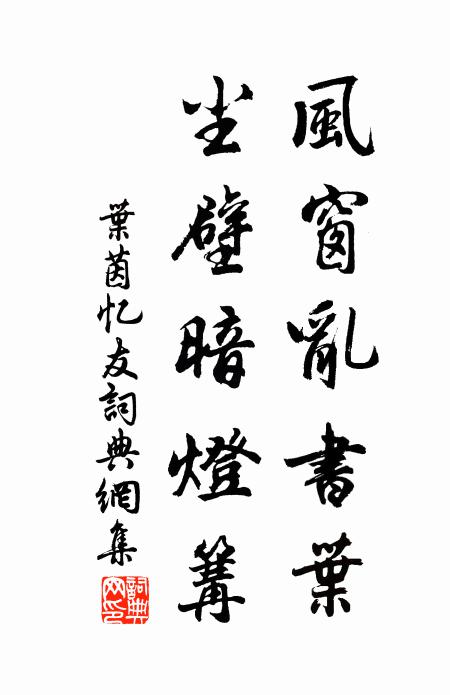 風窗亂書葉
尘壁暗燈篝
葉茵忆友詞典網集
詞典网印